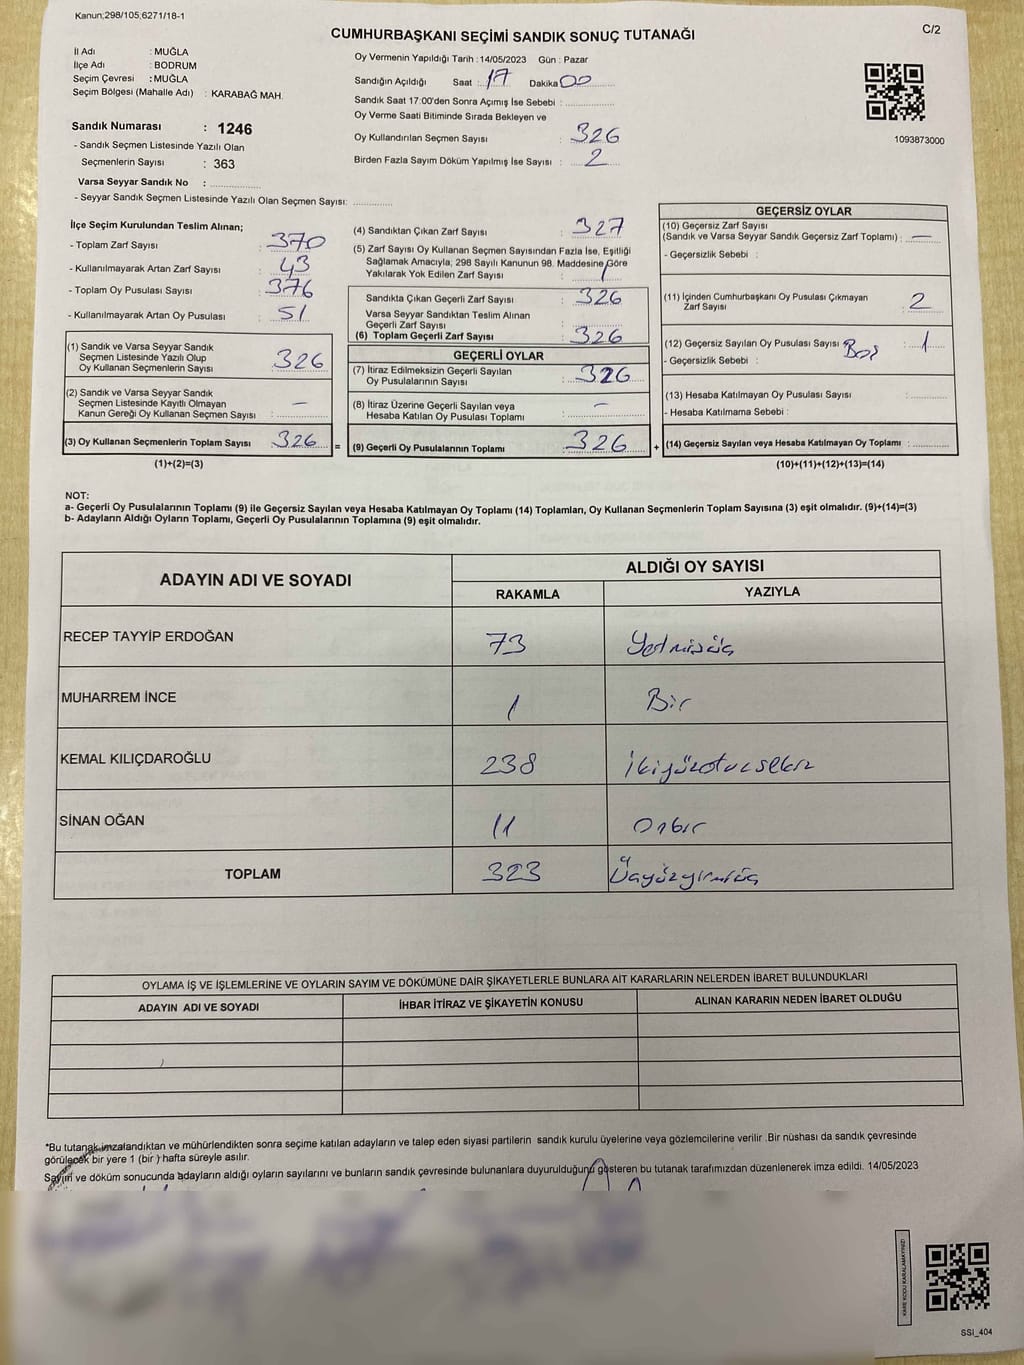 Kanun;298/105;6271/18-1
C/2
CUMHURBAŞKANI SEÇİMİ SANDIK SONUÇ TUTANAĞI
İl Adı : MUĞLA
İlçe Adı : BODRUM
Seçim Çevresi : MUĞLA
Seçim Bölgesi (Mahalle Adı) : KARABAĞ MAH.
Sandık Numarası : 1246
- Sandık Seçmen Listesinde Yazılı Olan
Seçmenlerin Sayısı : 363
Varsa Seyyar Sandık No :
- Seyyar Sandık Seçmen Listesinde Yazılı Olan Seçmen Sayısı:
Oy Vermenin Yapıldığı Tarih : 14/05/2023 Gün : Pazar
Sandığın Açıldığı Saat : 17 Dakika 00
Sandık Saat 17:00'den Sonra Açımış İse Sebebi :
Oy Verme Saati Bitiminde Sırada Bekleyen ve
Oy Kullandırılan Seçmen Sayısı : 326
Birden Fazla Sayım Döküm Yapılmış İse Sayısı : 2
1093873000
İlçe Seçim Kurulundan Teslim Alınan;
- Toplam Zarf Sayısı : 370
- Kullanılmayarak Artan Zarf Sayısı : 43
- Toplam Oy Pusulası Sayısı : 376
- Kullanılmayarak Artan Oy Pusulası : 51
(1) Sandık ve Varsa Seyyar Sandık
Seçmen Listesinde Yazılı Olup
Oy Kullanan Seçmenlerin Sayısı : 326
(2) Sandık ve Varsa Seyyar Sandık
Seçmen Listesinde Kayıtlı Olmayan
Kanun Gereği Oy Kullanan Seçmen Sayısı : –
(3) Oy Kullanan Seçmenlerin Toplam Sayısı 326 =
(1)+(2)=(3)
(4) Sandıktan Çıkan Zarf Sayısı : 327
(5) Zarf Sayısı Oy Kullanan Seçmen Sayısından Fazla İse, Eşitliği
Sağlamak Amacıyla; 298 Sayılı Kanunun 98. Maddesine Göre
Yakılarak Yok Edilen Zarf Sayısı : 1
Sandıkta Çıkan Geçerli Zarf Sayısı : 326
Varsa Seyyar Sandıktan Teslim Alınan
Geçerli Zarf Sayısı :
(6) Toplam Geçerli Zarf Sayısı : 326
GEÇERLİ OYLAR
(7) İtiraz Edilmeksizin Geçerli Sayılan
Oy Pusulalarının Sayısı : 326
(8) İtiraz Üzerine Geçerli Sayılan veya
Hesaba Katılan Oy Pusulası Toplamı : –
(9) Geçerli Oy Pusulalarının Toplamı 326 +
GEÇERSİZ OYLAR
(10) Geçersiz Zarf Sayısı
(Sandık ve Varsa Seyyar Sandık Geçersiz Zarf Toplamı) : –
- Geçersizlik Sebebi :
(11) İçinden Cumhurbaşkanı Oy Pusulası Çıkmayan
Zarf Sayısı : 2
(12) Geçersiz Sayılan Oy Pusulası Sayısı Boş : 1
- Geçersizlik Sebebi :
(13) Hesaba Katılmayan Oy Pusulası Sayısı :
- Hesaba Katılmama Sebebi :
(14) Geçersiz Sayılan veya Hesaba Katılmayan Oy Toplamı :
(10)+(11)+(12)+(13)=(14)
NOT:
a- Geçerli Oy Pusulalarının Toplamı (9) ile Geçersiz Sayılan veya Hesaba Katılmayan Oy Toplamı (14) Toplamları, Oy Kullanan Seçmenlerin Toplam Sayısına (3) eşit olmalıdır. (9)+(14)=(3)
b- Adayların Aldığı Oyların Toplamı, Geçerli Oy Pusulalarının Toplamına (9) eşit olmalıdır.
ADAYIN ADI VE SOYADI
ALDIĞI OY SAYISI
RAKAMLA YAZIYLA
RECEP TAYYİP ERDOĞAN 73 Yetmişüç
MUHARREM İNCE 1 Bir
KEMAL KILIÇDAROĞLU 238 İkiyüzotuzsekiz
SİNAN OĞAN 11 Onbir
TOPLAM 323 Üçyüzyirmiüç
OYLAMA İŞ VE İŞLEMLERİNE VE OYLARIN SAYIM VE DÖKÜMÜNE DAİR ŞİKAYETLERLE BUNLARA AİT KARARLARIN NELERDEN İBARET BULUNDUKLARI
ADAYIN ADI VE SOYADI İHBAR İTİRAZ VE ŞİKAYETİN KONUSU ALINAN KARARIN NEDEN İBARET OLDUĞU
*Bu tutanak imzalandıktan ve mühürlendikten sonra seçime katılan adayların ve talep eden siyasi partilerin sandık kurulu üyelerine veya gözlemcilerine verilir .Bir nüshası da sandık çevresinde
görülecek bir yere 1 (bir ) hafta süreyle asılır.
Sayım ve döküm sonucunda adayların aldığı oyların sayılarını ve bunların sandık çevresinde bulunanlara duyurulduğunu gösteren bu tutanak tarafımızdan düzenlenerek imza edildi. 14/05/2023
KARE KODU KARALAMAYINIZ!
SSI_404